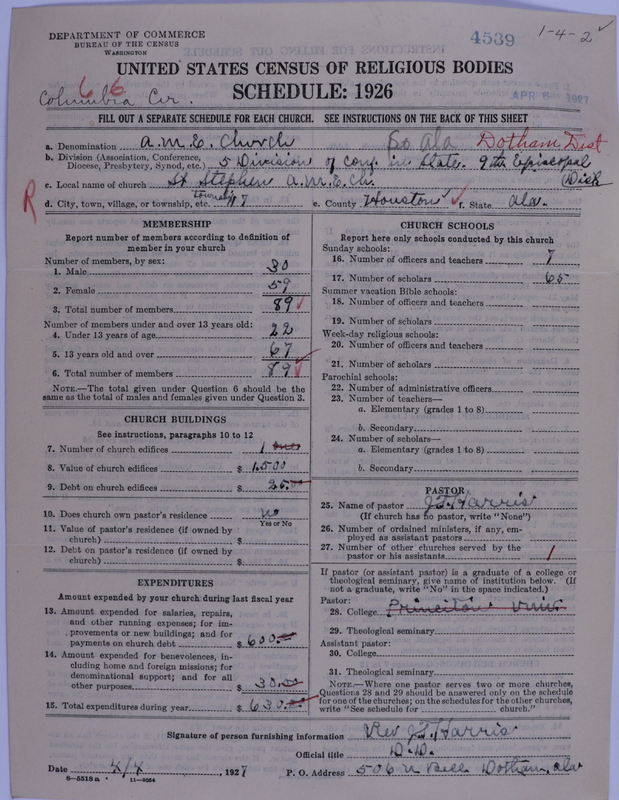 DEPARTMENT OF COMMERCE
BUREAU OF THE CENSUS
WASHINGTON
4539
1-4-2 ✓
UNITED STATES CENSUS OF RELIGIOUS BODIES
66
Columbia Cir.
SCHEDULE: 1926
APR 1927
FILL OUT A SEPARATE SCHEDULE FOR EACH CHURCH. SEE INSTRUCTIONS ON THE BACK OF THIS SHEET
a. Denomination A.M.E. Church So Ala Dotham Dist
b. Division (Association, Conference, Diocese, Presbytery, Synod, etc.) 5 Division of conf. in State. 9th Episcopal Dist
c. Local name of church St Stephen A.M.E. Ch.
R
d. City, town, village, or township, etc. township 7 e. County Houston ✓ f. State Ala.
MEMBERSHIP
Report number of members according to definition of member in your church
Number of members, by sex:
1. Male 30
2. Female 59
3. Total number of members 89 ✓
Number of members under and over 13 years old:
4. Under 13 years of age 22
5. 13 years old and over 67
6. Total number of members 89 ✓
NOTE.—The total given under Question 6 should be the same as the total of males and females given under Question 3.
CHURCH BUILDINGS
See instructions, paragraphs 10 to 12
7. Number of church edifices 1
8. Value of church edifices $ 1,500
9. Debt on church edifices $ 25.
10. Does church own pastor's residence no
Yes or No
11. Value of pastor's residence (if owned by church) $
12. Debt on pastor's residence (if owned by church) $
EXPENDITURES
Amount expended by your church during last fiscal year
13. Amount expended for salaries, repairs, and other running expenses; for improvements or new buildings; and for payments on church debt $ 600.00
14. Amount expended for benevolences, including home and foreign missions; for denominational support; and for all other purposes $ 30.00
15. Total expenditures during year $ 630.00
CHURCH SCHOOLS
Report here only schools conducted by this church
Sunday schools:
16. Number of officers and teachers 7
17. Number of scholars 65
Summer vacation Bible schools:
18. Number of officers and teachers
19. Number of scholars
Week-day religious schools:
20. Number of officers and teachers
21. Number of scholars
Parochial schools:
22. Number of administrative officers
23. Number of teachers—
a. Elementary (grades 1 to 8)
b. Secondary
24. Number of scholars—
a. Elementary (grades 1 to 8)
b. Secondary
PASTOR
25. Name of pastor J.T. Harris
(If church has no pastor, write "None")
26. Number of ordained ministers, if any, employed as assistant pastors
27. Number of other churches served by the pastor or his assistants 1
If pastor (or assistant pastor) is a graduate of a college or theological seminary, give name of institution below. (If not a graduate, write "No" in the space indicated.)
Pastor:
28. College Princeton Univ
29. Theological seminary
Assistant pastor:
30. College
31. Theological seminary
NOTE.—Where one pastor serves two or more churches, Questions 28 and 29 should be answered only on the schedule for one of the churches; on the schedules for the other churches, write "See schedule for church."
Signature of person furnishing information Rev J.T. Harris
Official title D.D.
Date 4/4, 1927 P. O. Address 506 N Bell Dotham, Ala
8-5318 a 11-9064